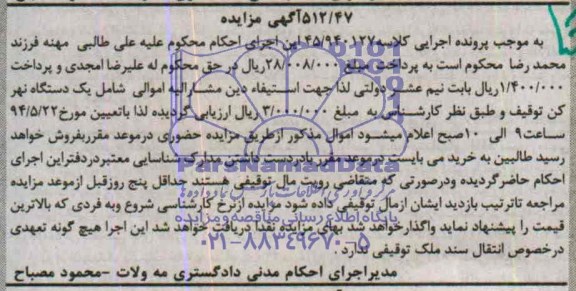 ۵۱۲/۴۷آگهی مزایده
به موجب پرونده اجرایی کلاسه۴۵/۹۴۰۱۲۷ این اجرای احکام محکوم علیه علی طالبی مهنه فرزند
محمد رضا محکوم است به پرداخت مبلغ ۲۸/۰۰۸/۰۰۰ریال در حق محکوم له علیرضا امجدی و پرداخت
۱/۴۰۰/۰۰۰ریال بابت نیم عشر دولتی لذا جهت استیفاء دین مشارالیه اموالی شامل یک دستگاه نهر
کن توقیف و طبق نظر کارشناسی به مبلغ ۳/۰۰۰/۰۰۰ریال ارزیابی گردیده لذا باتعیین مورخ۹۴/۵/۲۲
ساعت۹ الی ۱۰صبح اعلام میشود اموال مذکور ازطریق مزایده حضوری درموعد مقرربفروش خواهد
رسید طالبین به خرید می بایست درموعد مقرر بادردست داشتن مدارک شناسایی معتبردردفتراین اجرای
احکام حاضرگردیده ودرصورتی که متقاضی رویت مال توقیفی هستند حداقل پنج روزقبل ازموعد مزایده
مراجعه تاترتیب بازدید ایشان ازمال توقیفی داده شود مزایده ازنرخ کارشناسی شروع وبه فردی که بالاترین
قیمت را پیشنهاد نماید واگذارخواهد شد بهای مزایده نقدا دریافت خواهد شد این اجرا هیچ گونه تعهدی
درخصوص انتقال سند ملک توقیفی ندارد .
مدیراجرای احکام مدنی دادگستری مه ولات -محمود مصباح
ParsNamadData
پایگاه اطلاع رسانی مناقصه و مزایده
۰۲۱-۸۸۳۴۹۶۷۰-۵